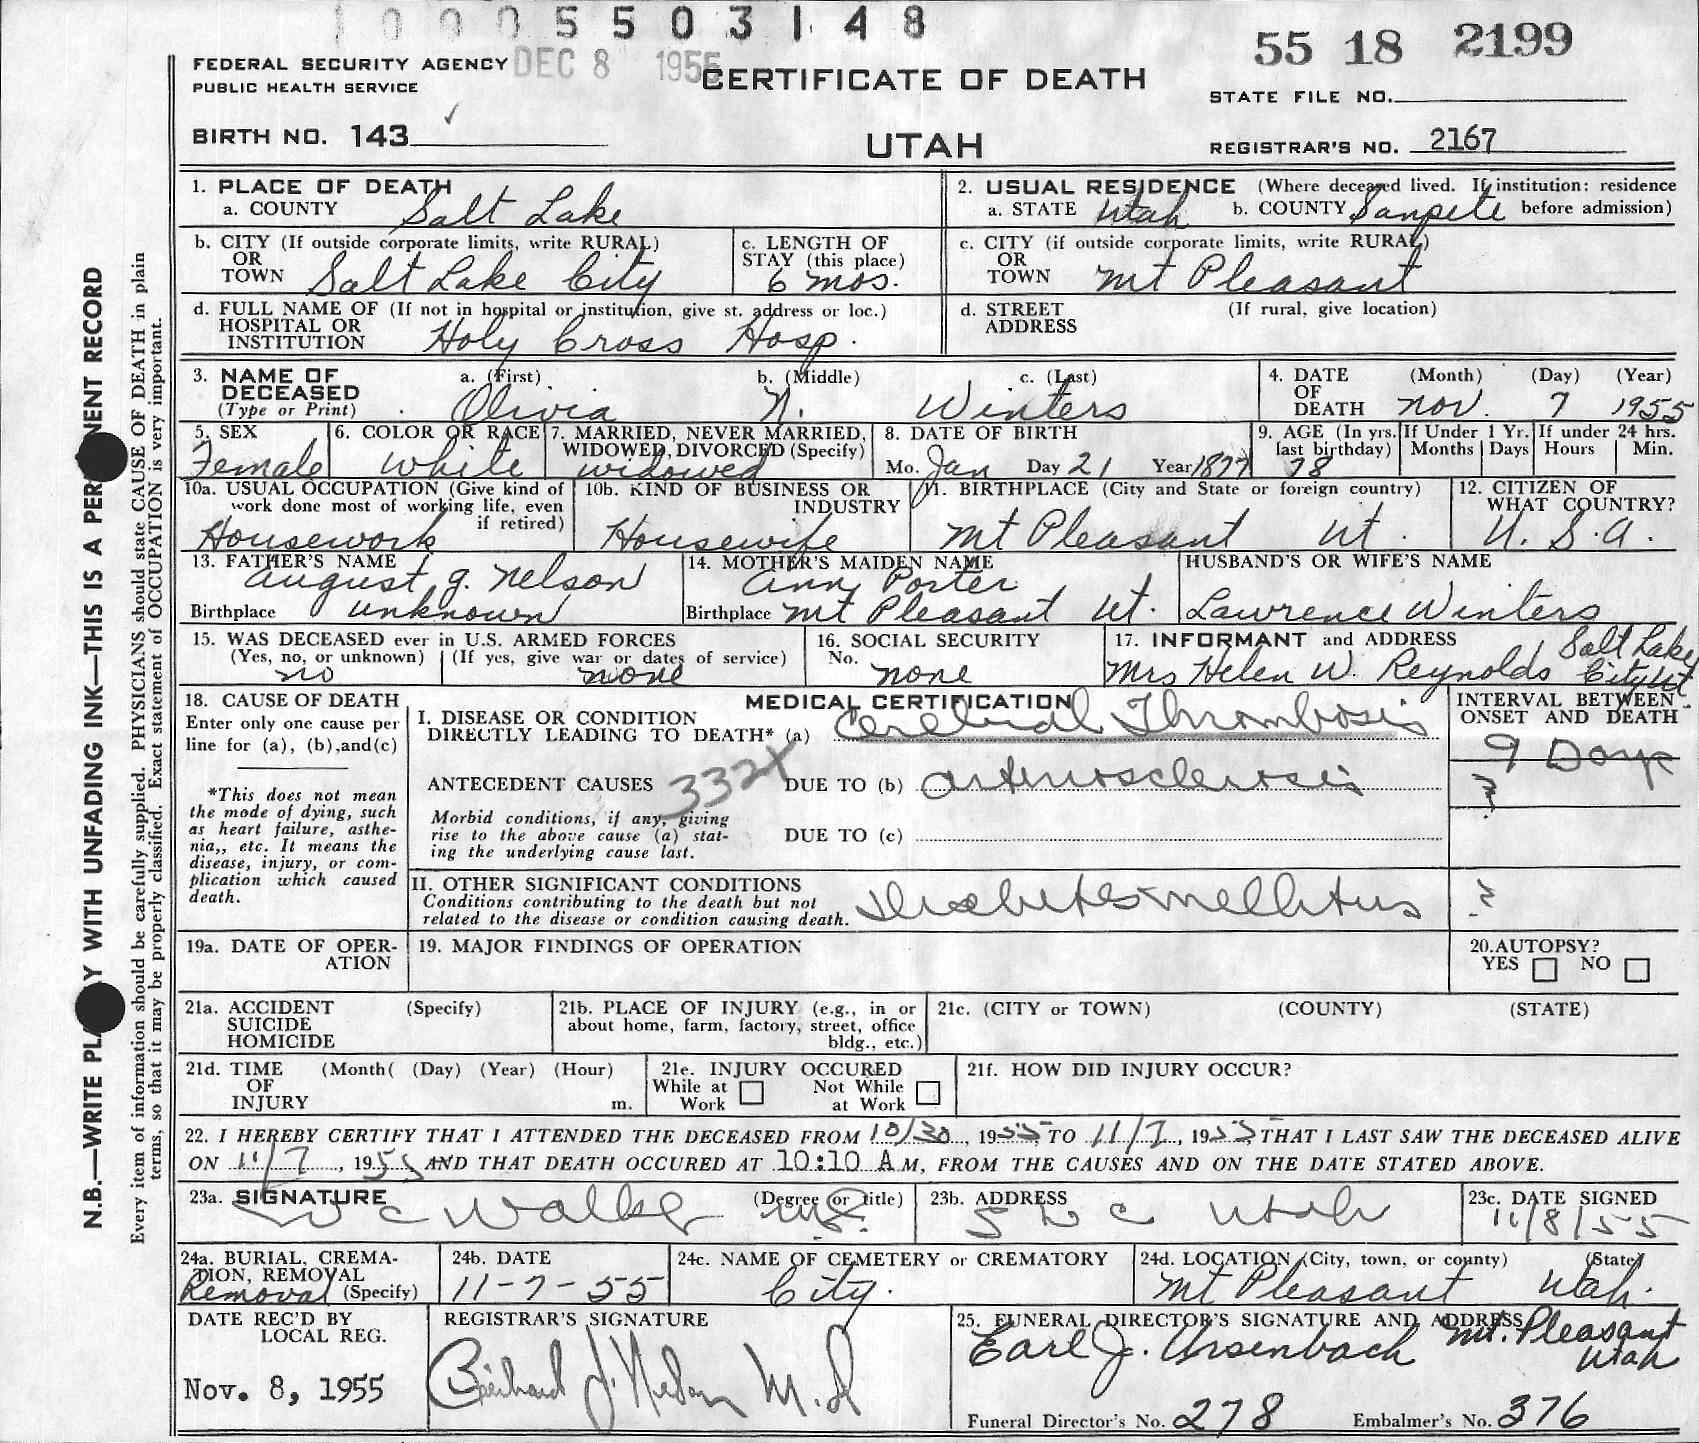 10005503148
55 18 2199
FEDERAL SECURITY AGENCY DEC 8 1955
PUBLIC HEALTH SERVICE
CERTIFICATE OF DEATH
STATE FILE NO.
BIRTH NO. 143
UTAH
REGISTRAR'S NO. 2167
N.B.—WRITE PLA Y WITH UNFADING INK—THIS IS A PER NENT RECORD
Every item of information should be carefully supplied. PHYSICIANS should state CAUSE OF DEATH in plain
terms, so that it may be properly classified. Exact statement of OCCUPATION is very important.
1. PLACE OF DEATH
a. COUNTY Salt Lake
2. USUAL RESIDENCE (Where deceased lived. If institution: residence
a. STATE Utah b. COUNTY Sanpete before admission)
b. CITY (If outside corporate limits, write RURAL)
OR
TOWN Salt Lake City
c. LENGTH OF
STAY (this place)
6 mos.
c. CITY (if outside corporate limits, write RURAL)
OR
TOWN Mt Pleasant
d. FULL NAME OF (If not in hospital or institution, give st. address or loc.)
HOSPITAL OR
INSTITUTION Holy Cross Hosp.
d. STREET (If rural, give location)
ADDRESS
3. NAME OF
DECEASED
(Type or Print)
a. (First) b. (Middle) c. (Last)
Olivia N. Winters
4. DATE (Month) (Day) (Year)
OF
DEATH Nov. 7 1955
5. SEX
Female
6. COLOR OR RACE
White
7. MARRIED, NEVER MARRIED,
WIDOWED, DIVORCED (Specify)
widowed
8. DATE OF BIRTH
Mo. Jan Day 21 Year 1877
9. AGE (In yrs.
last birthday)
78
If Under 1 Yr.
Months Days
If under 24 hrs.
Hours Min.
10a. USUAL OCCUPATION (Give kind of
work done most of working life, even
if retired)
Housework
10b. KIND OF BUSINESS OR
INDUSTRY
Housewife
11. BIRTHPLACE (City and State or foreign country)
Mt Pleasant Ut.
12. CITIZEN OF
WHAT COUNTRY?
U. S. A.
13. FATHER'S NAME
August J. Nelson
Birthplace unknown
14. MOTHER'S MAIDEN NAME
Ann Porter
Birthplace Mt Pleasant Ut.
HUSBAND'S OR WIFE'S NAME
Lawrence Winters
15. WAS DECEASED ever in U.S. ARMED FORCES
(Yes, no, or unknown) (If yes, give war or dates of service)
no none
16. SOCIAL SECURITY
No.
none
17. INFORMANT and ADDRESS Salt Lake
Mrs Helen W. Reynolds City Ut
18. CAUSE OF DEATH
Enter only one cause per
line for (a), (b), and (c)
*This does not mean
the mode of dying, such
as heart failure, asthe-
nia,, etc. It means the
disease, injury, or com-
plication which caused
death.
MEDICAL CERTIFICATION
I. DISEASE OR CONDITION
DIRECTLY LEADING TO DEATH* (a) Cerebral Thrombosis
ANTECEDENT CAUSES 332X DUE TO (b) arteriosclerosis
Morbid conditions, if any, giving
rise to the above cause (a) stat-
ing the underlying cause last.
DUE TO (c)
II. OTHER SIGNIFICANT CONDITIONS
Conditions contributing to the death but not
related to the disease or condition causing death.
Diabetes mellitus
INTERVAL BETWEEN
ONSET AND DEATH
9 Days
?
?
19a. DATE OF OPER-
ATION
19. MAJOR FINDINGS OF OPERATION
20. AUTOPSY?
YES NO
21a. ACCIDENT (Specify)
SUICIDE
HOMICIDE
21b. PLACE OF INJURY (e.g., in or
about home, farm, factory, street, office
bldg., etc.)
21c. (CITY or TOWN) (COUNTY) (STATE)
21d. TIME (Month( (Day) (Year) (Hour)
OF
INJURY m.
21e. INJURY OCCURED
While at Not While
Work at Work
21f. HOW DID INJURY OCCUR?
22. I HEREBY CERTIFY THAT I ATTENDED THE DECEASED FROM 10/30, 1955 TO 11/7, 1955, THAT I LAST SAW THE DECEASED ALIVE
ON 11/7, 1955 AND THAT DEATH OCCURED AT 10:10 A M, FROM THE CAUSES AND ON THE DATE STATED ABOVE.
23a. SIGNATURE (Degree or title)
W C Walker MD.
23b. ADDRESS
S L C Utah
23c. DATE SIGNED
11/8/55
24a. BURIAL, CREMA-
TION, REMOVAL
Removal (Specify)
24b. DATE
11-7-55
24c. NAME OF CEMETERY or CREMATORY
City.
24d. LOCATION (City, town, or county) (State)
Mt Pleasant Utah.
DATE REC'D BY
LOCAL REG.
Nov. 8, 1955
REGISTRAR'S SIGNATURE
J. Nelson M.D
25. FUNERAL DIRECTOR'S SIGNATURE AND ADDRESS
Earl J. Ursenbach Mt. Pleasant
Utah
Funeral Director's No. 278 Embalmer's No. 376